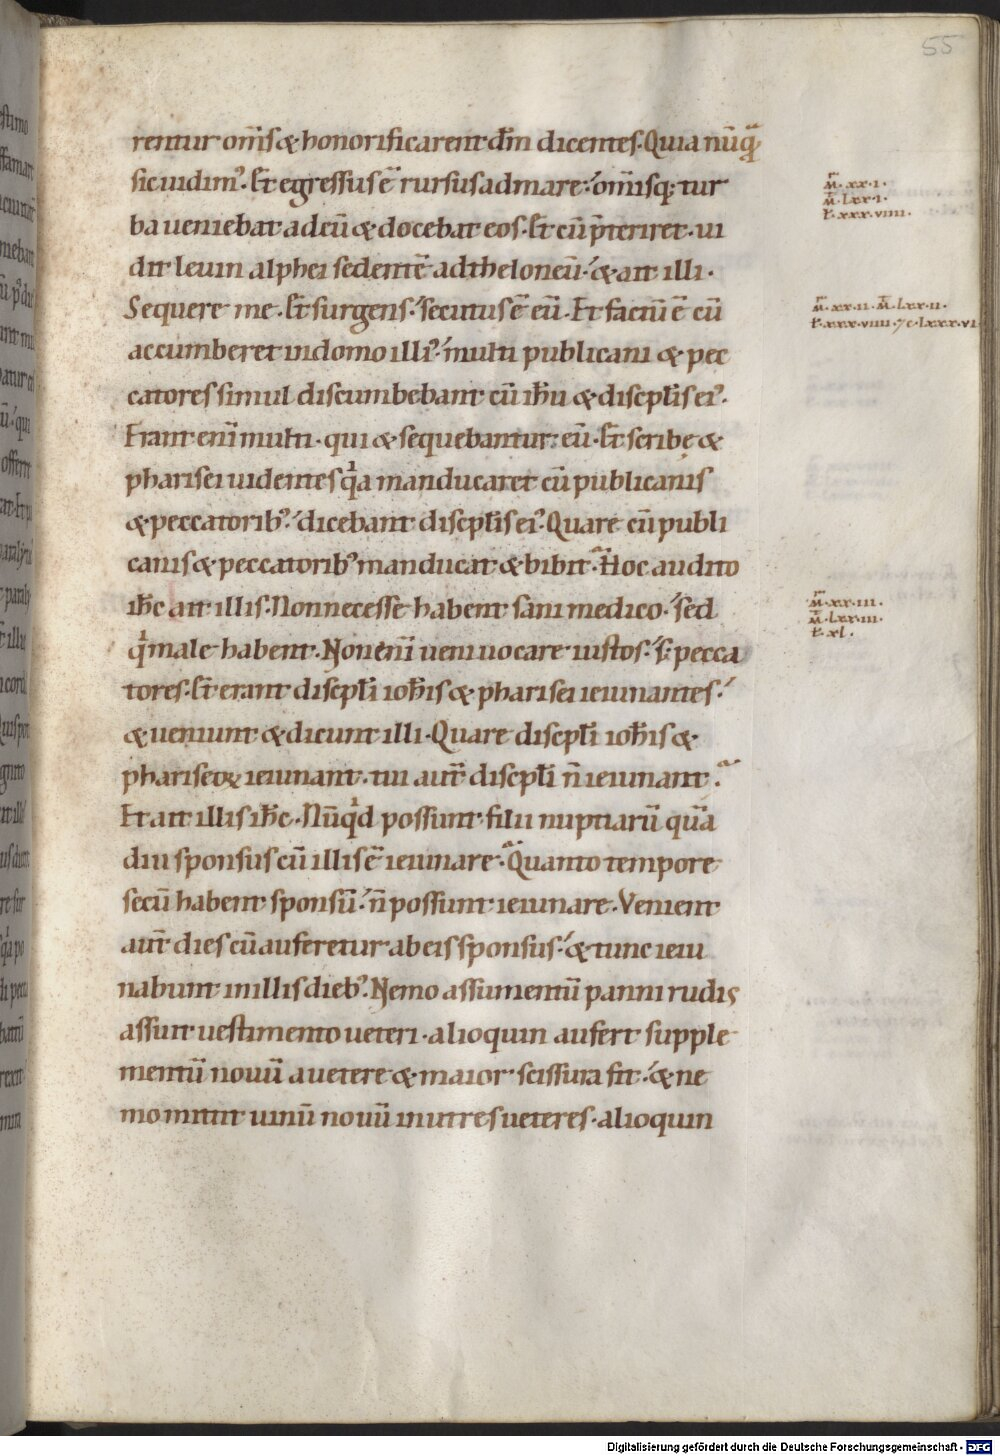 55
rentur om̄s & honorificarent dm̄ dicentes. Quia nūquā
sic uidim'. Et egressus ē rursus ad mare. omīsq; tur
ba ueniebat ad eū & docebat eos. Et cū p̄teriret. ui
dit leuin alphei sedentē ad theloneū. & ait illi.
Sequere me. Et surgens. secutus ē eū. Et factū ē cū
accumberet in domo illi'. multi publicani & pec
catores simul discumbebant cū ih̄u & discipl̄is ei'.
Erant enī multi. qui & sequebantur eū. Et scribę &
pharisei uidentes qa manducaret cū publicanis
& peccatorib'. dicebant discipl̄is ei'. Quare cū publi
canis & peccatorib' manducat & bibit. Hoc audito
ih̄c ait illis. Non necesse habent sani medico. sed
qi male habent. Non enī ueni uocare iustos. s; pecca
tores. Et erant discipl̄i ioh̄is & pharisei ieiunantes.
& ueniunt & dicunt illi. Quare discipl̄i ioh̄is &
phariseoꝝ ieiunant. tui aut̄ discipl̄i n̄ ieiunant.
Et ait illis ih̄c. Nūqd possunt filii nuptiarū quā
diu sponsus cū illis ē ieiunare. Quanto tempore
secū habent sponsū. n̄ possunt ieiunare. Venient
aut̄ dies cū auferetur ab eis sponsus. & tunc ieiu
nabunt in illis dieb'. Nemo assumentū panni rudis
assuit uestimento ueteri. alioquin aufert supple
mentū nouū a uetere & maior scissura fit. & ne
mo mittit uinū nouū in utres ueteres. alioquin
m̄r. xx.i.
m̄. lxx.i.
l. xxx.viiii.
m̄r. xx.ii. m̄. lxx.ii.
l. xxx.viiii. 7 c.lxxx.vi
m̄r. xx.iii.
m̄. lxx.iii.
l. xl.
Digitalisierung gefördert durch die Deutsche Forschungsgemeinschaft - DFG